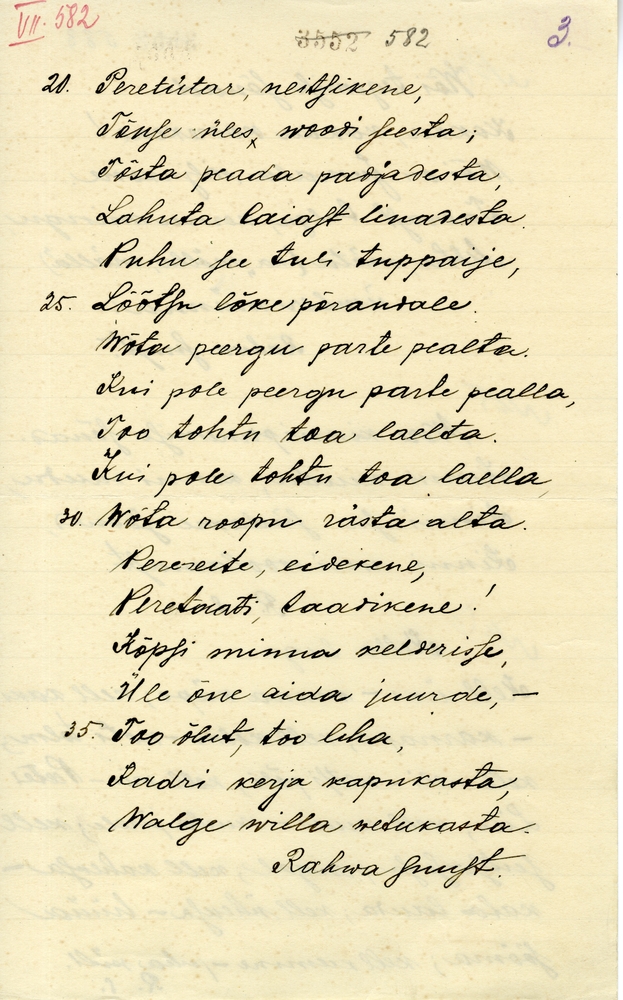 VII. 582
3552 582
3.
20. Peretütar, neitsikene,
Tõuse üles, woodi seesta;
Tõsta peada padjadesta,
Lahuta laiast linadesta.
Puhu see tuli tuppaije,
25. Löötsu lõke põrandale.
Wõta peergu parte pealta.
Kui pole peergu parte pealla,
Too tohtu toa laelta.
Kui pole tohtu toa laella,
30. Wõta roopu rästa alta.
Pereeite, eidekene,
Peretaati, taadikene!
Kõpsi minna kelderisse,
Üle õne aida juurde, —
35. Too õlut, too liha,
Kadri kerja kapukasta,
Walge willa wetukasta.
Rahwa suust.